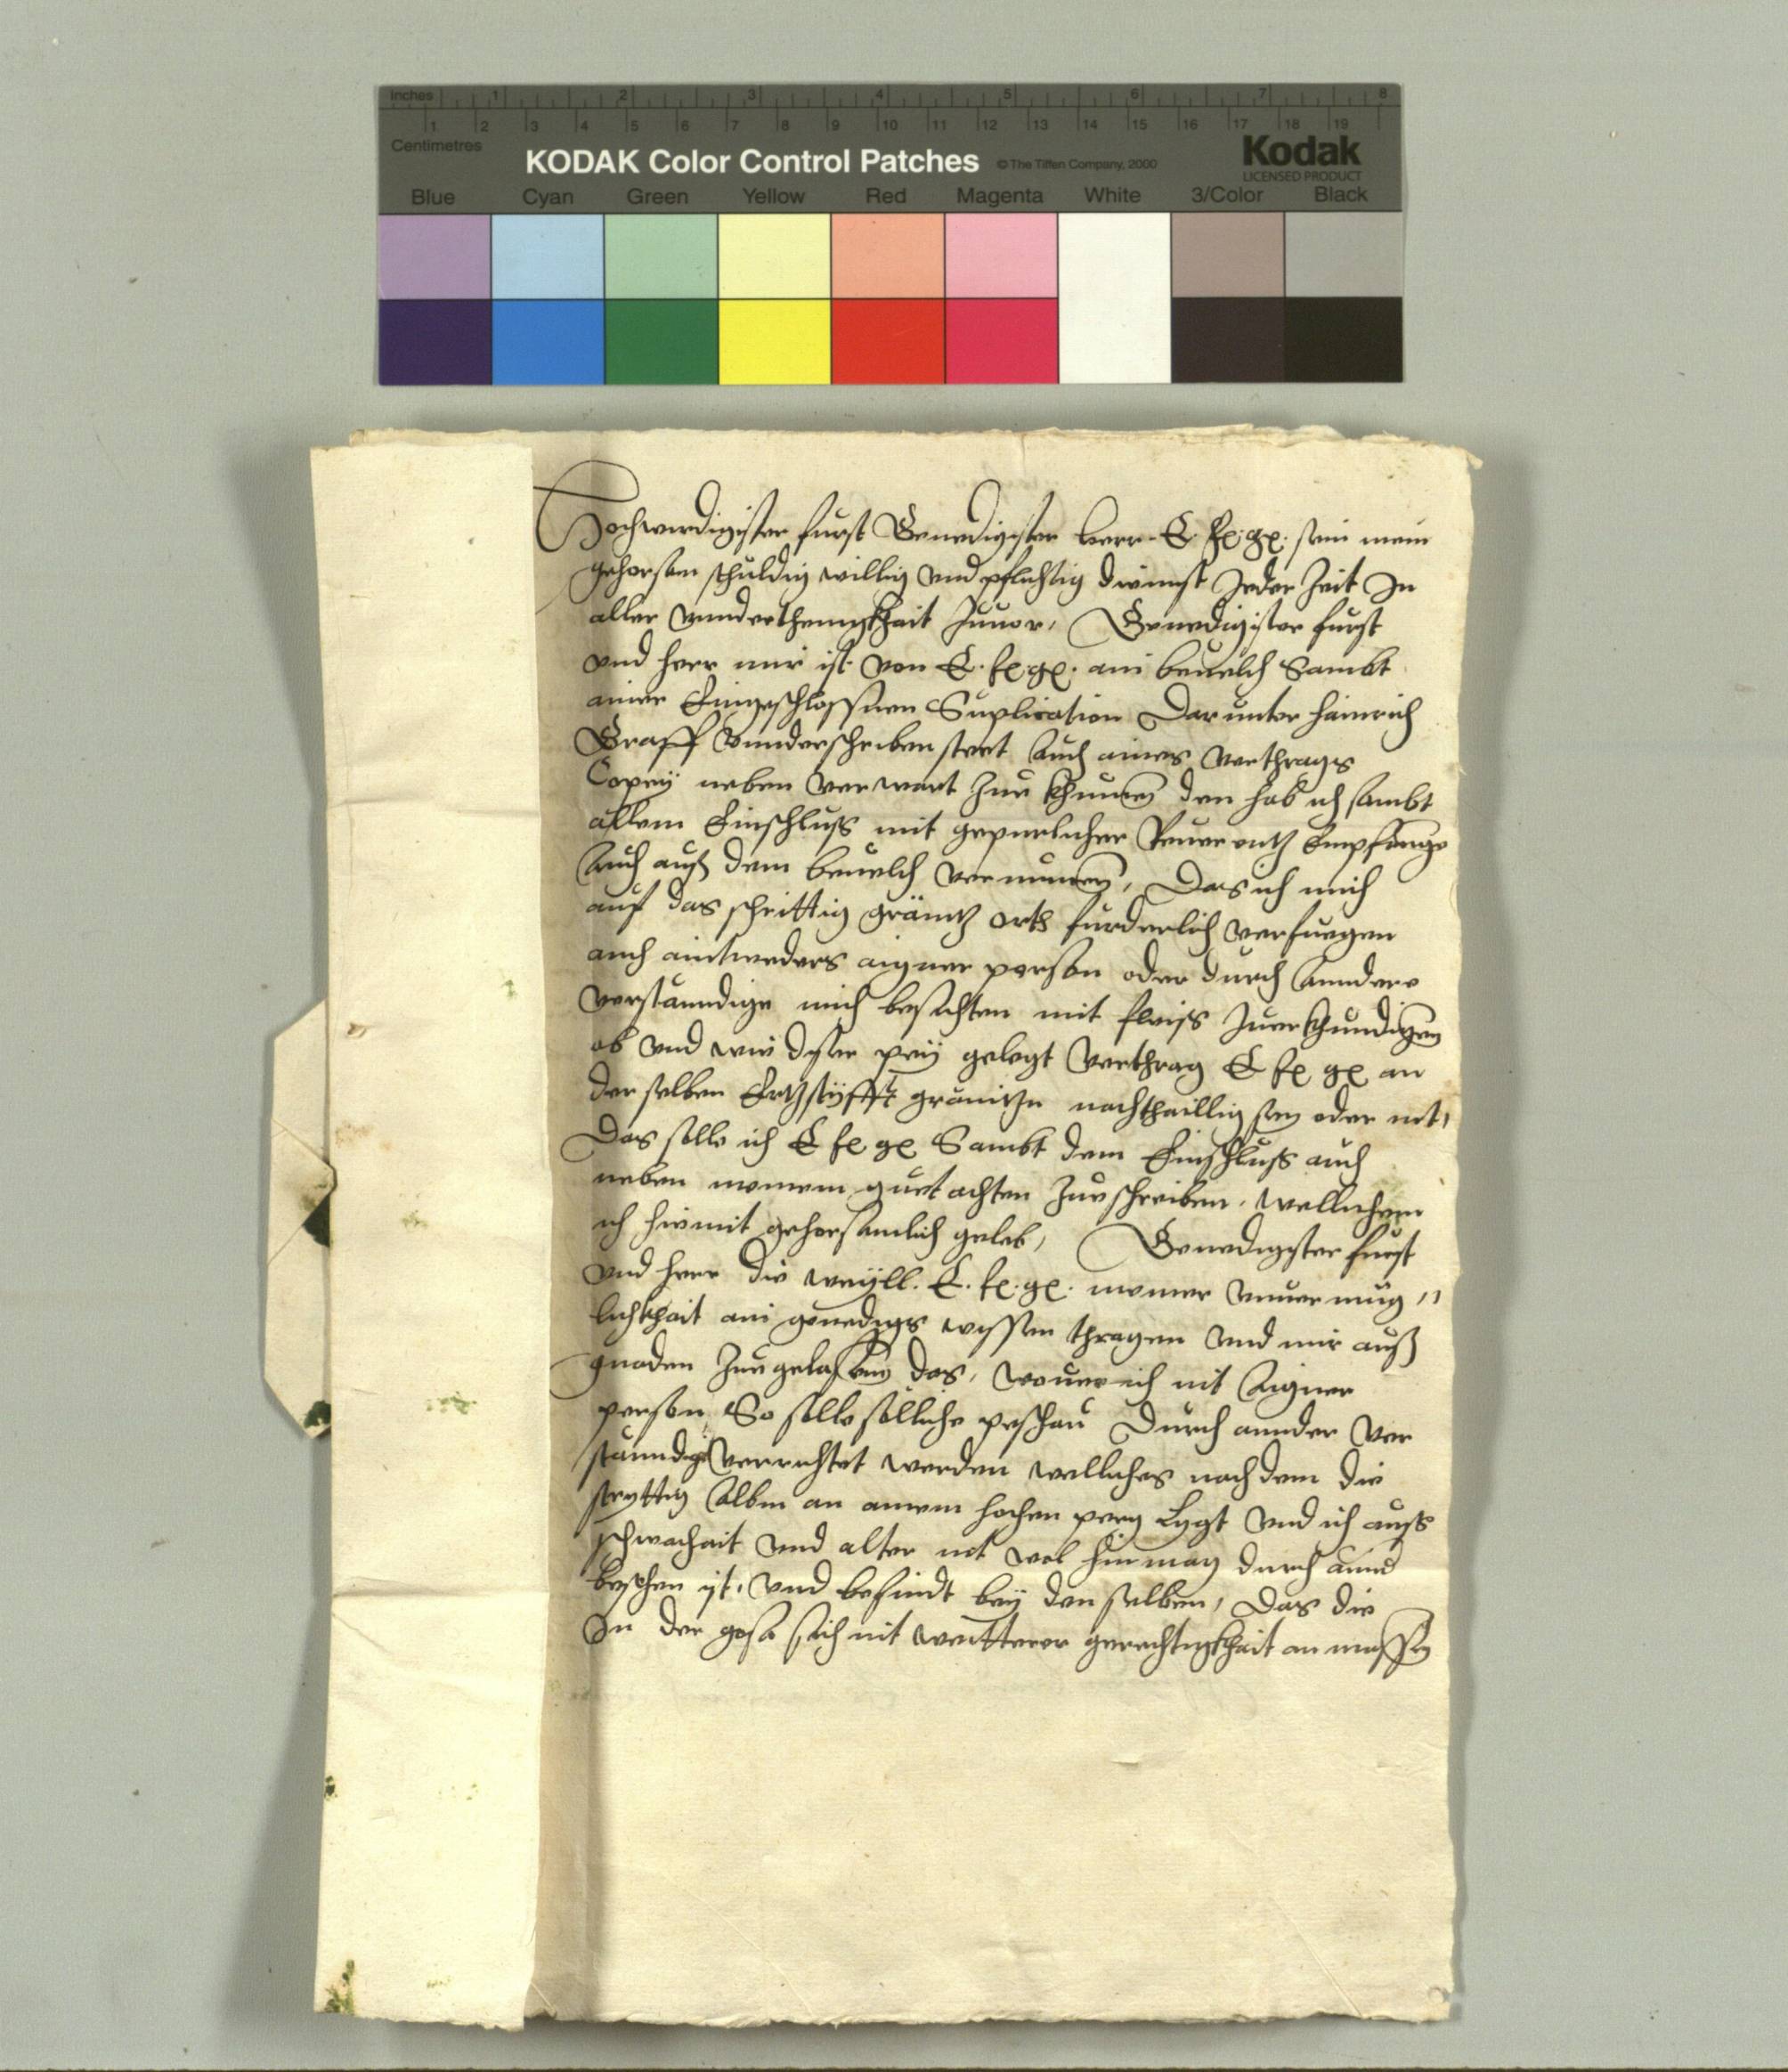 Inches 1 2 3 4 5 6 7 8
1 2 3 4 5 6 7 8 9 10 11 12 13 14 15 16 17 18 19
Centimetres
KODAK Color Control Patches © The Tiffen Company, 2000 Kodak
LICENSED PRODUCT
Blue Cyan Green Yellow Red Magenta White 3/Color Black
Hochwirdigister furst Genedigister herr E. fr: gr: sein mein
gehorsam schuldig willig und pflichtig diennst Jeder Zeit In
aller vnnderthenigkhait Zuuor, Genedigister furst
vnd herr mir ist von E. fr: gr: ain beuelch Sambt
ainer Eingeschlossnen Suplication Darunter hainrich
Graff vnnderschriben steet Auch aines verthrags
Copeÿ neben verwart Zue khumen den hab ich sambt
allem Einschluss mit gepurlicher Reuerentz Empfange
Auch auß dem beuelch vernumen, Das ich mich
auf das schrittig gränitz orth furderlich verfuegen
auch aintweders aigner person oder durch Anndere
verstänndige mich besichten mit fleiss Zuerkhundigen
ob vnd wie diser peÿ gelegt verthrag E fr gr an
derselben Ertzstÿfft gränitzn nachthaillig sey oder nit,
Das solle ich E fr gr Sambt dem Einschluss auch
neben meinem guetachten Zueschreiben, wellichem
ich hiemit gehorsamlich geleb, Genedigster furst
vnd herr die weÿll. E. fr: gr: meiner vnuermug,,
lichkhait ain genedigs wissen thragen vnd mir auß
gnaden Zuegelassen das, wouer ich nit Aigner
person So solle solliche peschau Durch annder ver
stänndige verrichtet werden welliches nach dem die
stryttig Alben an ainem hochen perg Lygt vnd ich auss
schwachait vnd alter nit wol hin mag durch annd
beschen ist, vnd befindt beÿ denselben, Das die
In der gosa sich nit weitterer gerechtigkhait anmassen